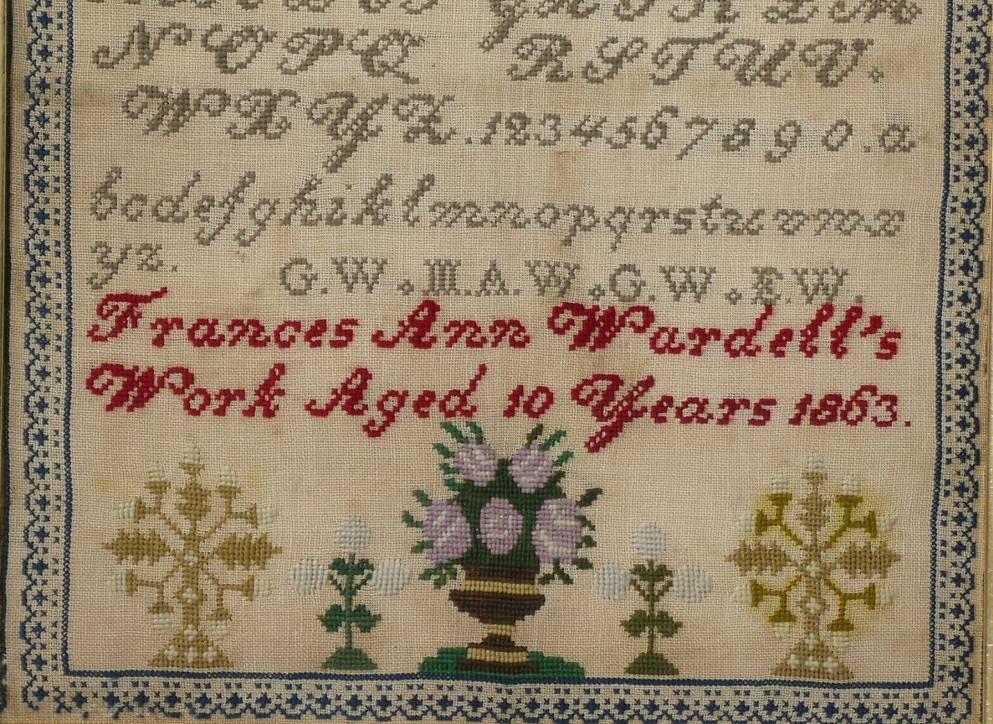 N O P Q R S T U V.
W X Y Z . 1 2 3 4 5 6 7 8 9 0 . a
b c d e f g h i k l m n o p q r s t u v w x
y z. G.W.M.A.W.G.W.E.W.
Frances Ann Wardell's
Work Aged 10 Years 1863.